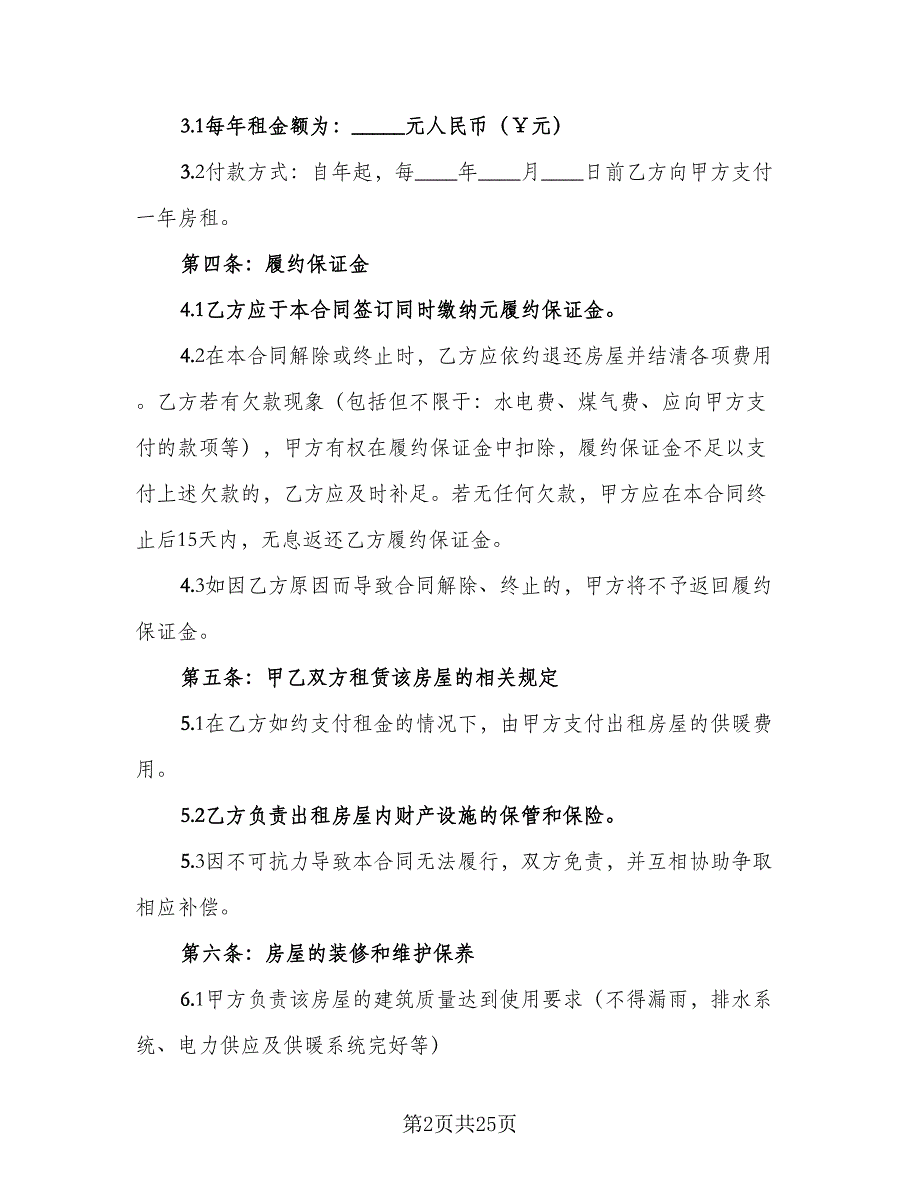 3.1每年租金额为：_____元人民币（￥元）
3.2付款方式：自年起，每____年____月____日前乙方向甲方支付
一年房租。
第四条：履约保证金
4.1乙方应于本合同签订同时缴纳元履约保证金。
4.2在本合同解除或终止时，乙方应依约退还房屋并结清各项费用
。乙方若有欠款现象（包括但不限于：水电费、煤气费、应向甲方支
付的款项等），甲方有权在履约保证金中扣除，履约保证金不足以支
付上述欠款的，乙方应及时补足。若无任何欠款，甲方应在本合同终
止后15天内，无息返还乙方履约保证金。
4.3如因乙方原因而导致合同解除、终止的，甲方将不予返回履约
保证金。
第五条：甲乙双方租赁该房屋的相关规定
5.1在乙方如约支付租金的情况下，由甲方支付出租房屋的供暖费
用。
5.2乙方负责出租房屋内财产设施的保管和保险。
5.3因不可抗力导致本合同无法履行，双方免责，并互相协助争取
相应补偿。
第六条：房屋的装修和维护保养
6.1甲方负责该房屋的建筑质量达到使用要求（不得漏雨，排水系
统、电力供应及供暖系统完好等）
第2页共25页